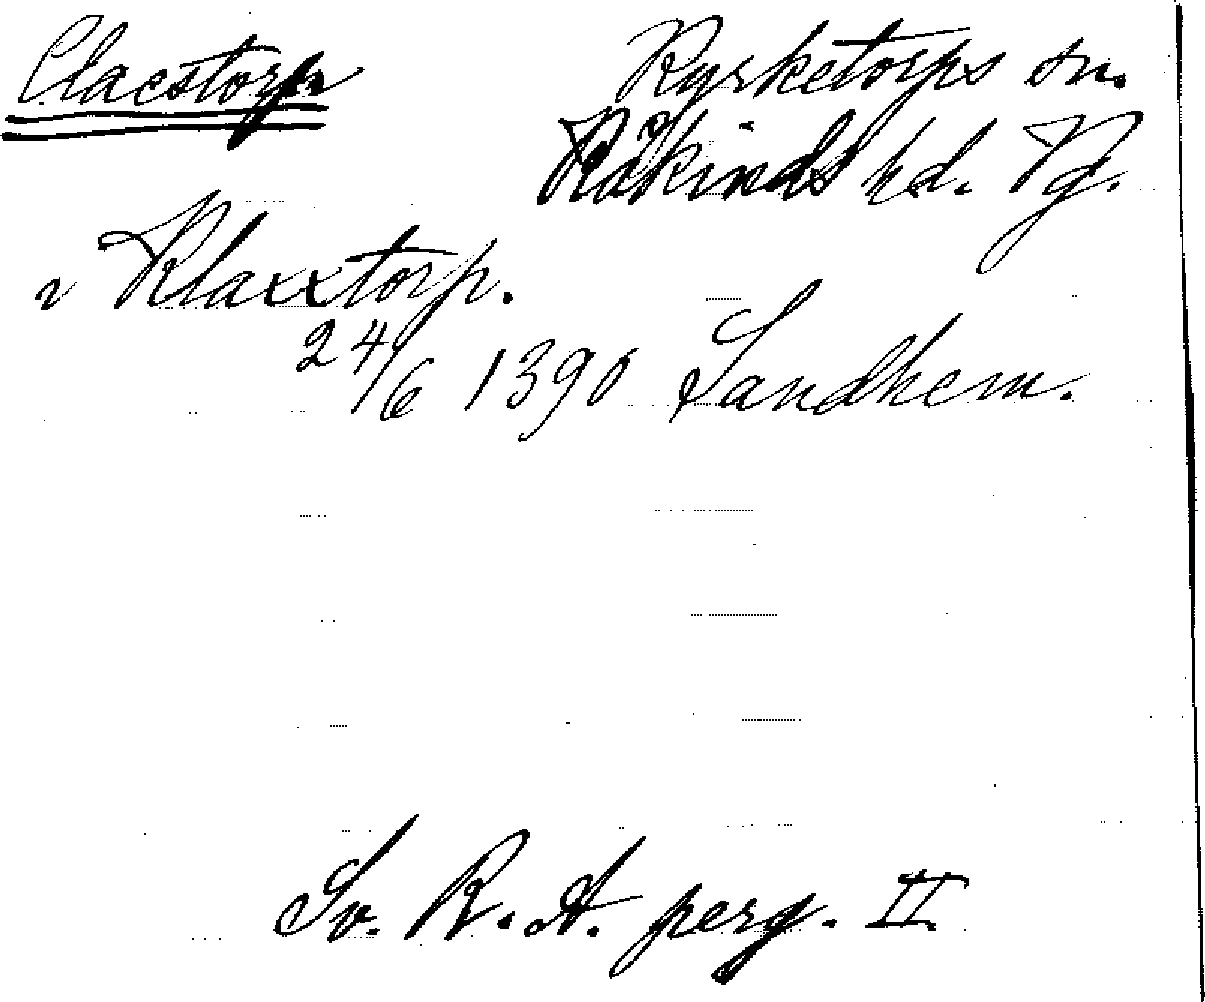 Claestorp Kyrketorps sn.
Kåkinds hd. Vg.
v Klaxxtorp.
24/6 1390 Sandhem.
Sv. R. A. perg. II